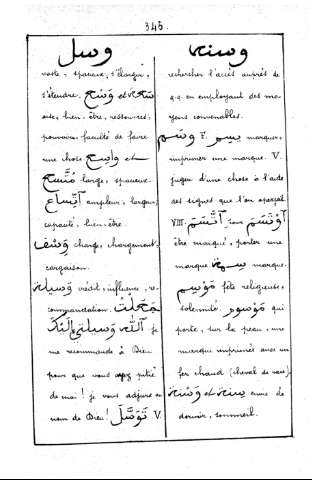 345.
وسل
وسنة
vaste, spacieux, s'élargir,
s'étendre. وُسْع et سَعَة
aise, bien-être, ressources,
pouvoir, faculté de faire
une chose وَاسِع et
مُتَّسِع large, spacieux.
اِتِّسَاع ampleur, largeur,
capacité, bien-être.
وَسْق charge, chargement,
cargaison.
وَسِيلَة crédit, influence, re-
commandation.
اَللّٰه وَسِيلَتِي إِلَيْكَ je
me recommande à Dieu
pour que vous ayez pitié
de moi! je vous adjure au
nom de Dieu! تَوَسَّلَ V.
rechercher l'accès auprès de
q.q. en employant des mo-
yens convenables.
وَسَم F. يَسِم marquer,
imprimer une marque. V.
juger d'une chose à l'aide
des signes que l'on aperçoit
VIII. اِتَّسَم pour اِوْتَسَم
être marqué, porter une
marque سِمَة marque.
مَوْسِم fête religieuse,
solennité. مَوْسُوم qui
porte, sur la peau, une
marque imprimée avec un
fer chaud (cheval de race).
وَسَن et سِنَة envie de
dormir, sommeil.